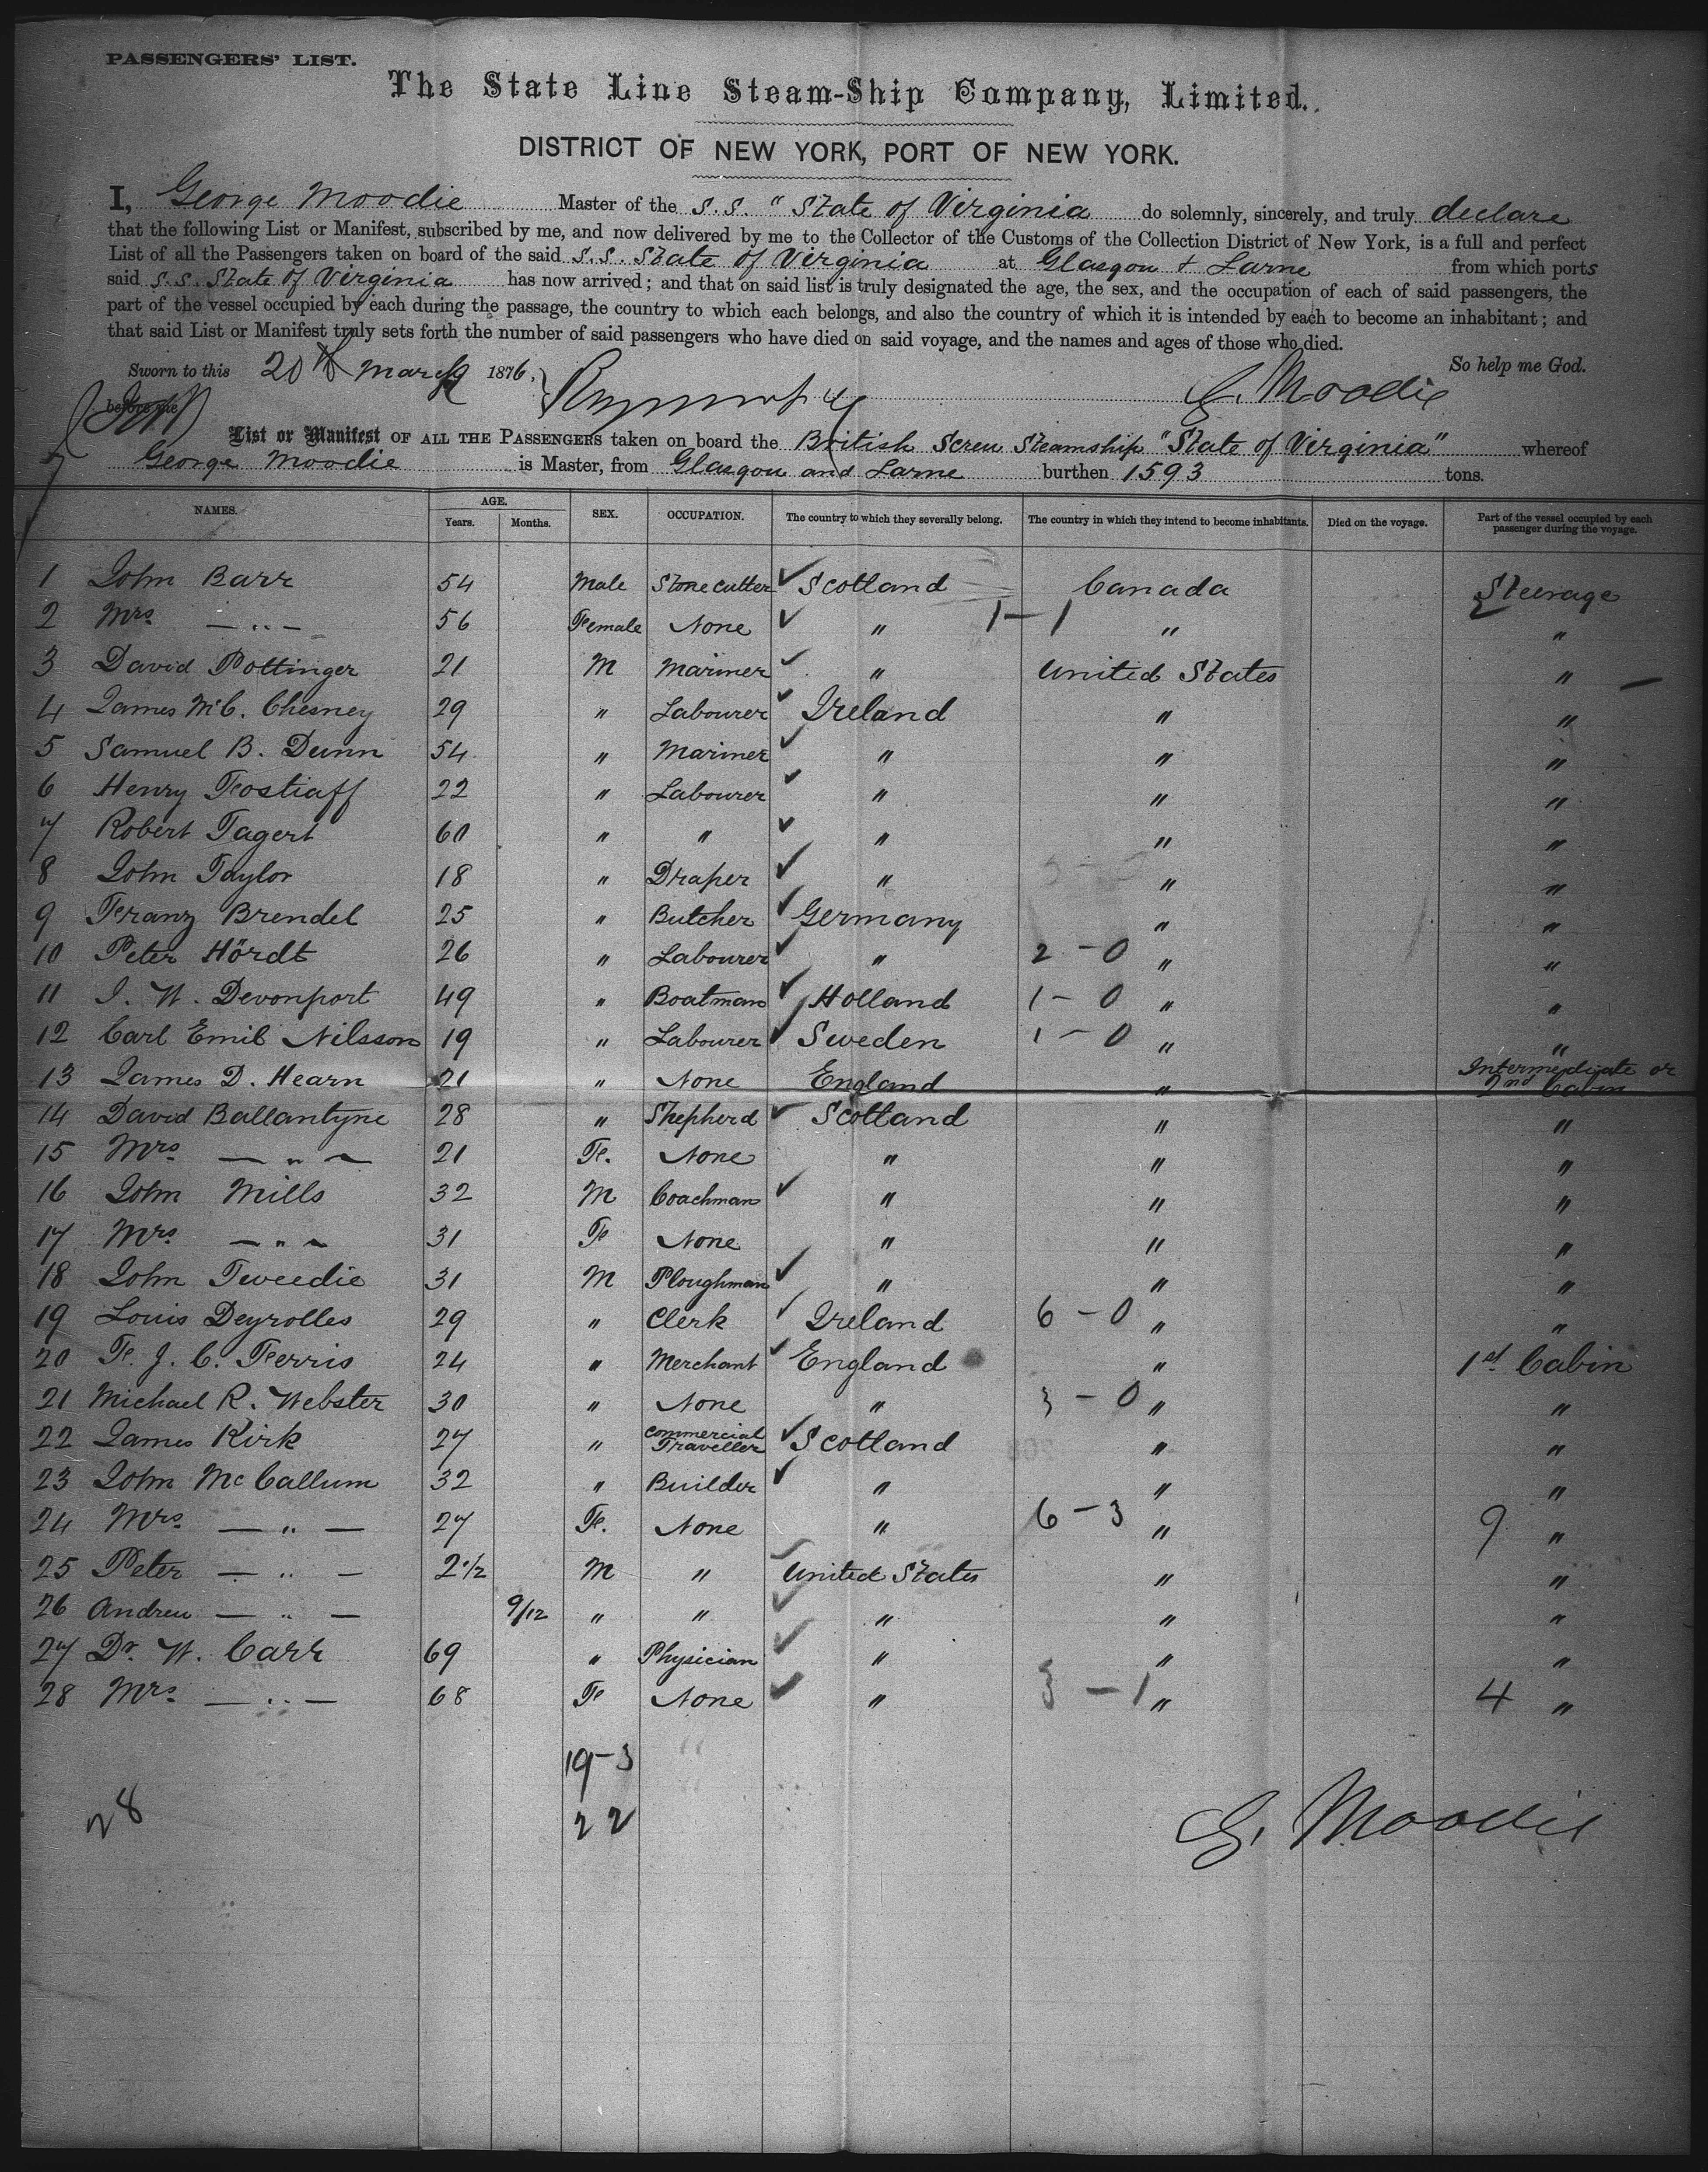 PASSENGERS' LIST.
The State Line Steam-Ship Company, Limited.
DISTRICT OF NEW YORK, PORT OF NEW YORK.
I, George Moodie Master of the S.S. "State of Virginia do solemnly, sincerely, and truly declare
that the following List or Manifest, subscribed by me, and now delivered by me to the Collector of the Customs of the Collection District of New York, is a full and perfect
List of all the Passengers taken on board of the said S.S. State of Virginia at Glasgow & Larne from which ports
said S.S. State of Virginia has now arrived; and that on said list is truly designated the age, the sex, and the occupation of each of said passengers, the
part of the vessel occupied by each during the passage, the country to which each belongs, and also the country of which it is intended by each to become an inhabitant; and
that said List or Manifest truly sets forth the number of said passengers who have died on said voyage, and the names and ages of those who died.
Sworn to this 20th March 1876, So help me God.
before me G. Moodie
List or Manifest OF ALL THE PASSENGERS taken on board the British Screw Steamship "State of Virginia" whereof
George Moodie is Master, from Glasgow and Larne burthen 1593 tons.
NAMES. AGE. Years. Months. SEX. OCCUPATION. The country to which they severally belong. The country in which they intend to become inhabitants. Died on the voyage. Part of the vessel occupied by each passenger during the voyage.
1 John Barr 54 Male Stone Cutter ✓ Scotland Canada Steerage
2 Mrs — " — 56 Female None ✓ " 1-1 " "
3 David Pottinger 21 M Mariner ✓ " United States " —
4 James McC. Chesney 29 " Labourer ✓ Ireland " "
5 Samuel B. Dunn 54 " Mariner ✓ " " "
6 Henry Fostiaff 22 " Labourer ✓ " " "
7 Robert Tagert 60 " " ✓ " " "
8 John Taylor 18 " Draper ✓ " " "
9 Franz Brendel 25 " Butcher ✓ Germany " "
10 Peter Hördt 26 " Labourer ✓ " 2-0 " "
11 J. W. Devonport 49 " Boatman ✓ Holland 1-0 " "
12 Carl Emil Nilsson 19 " Labourer ✓ Sweden 1-0 " "
13 James D. Hearn 21 " None England " Intermediate or 2nd Cabin
14 David Ballantyne 28 " Shepherd ✓ Scotland " "
15 Mrs — " — 21 F. None " " "
16 John Mills 32 M Coachman ✓ " " "
17 Mrs — " — 31 F None " " "
18 John Tweedie 31 M Ploughman ✓ " " "
19 Louis Deyrolles 29 " Clerk ✓ Ireland 6-0 " "
20 F. J. C. Ferris 24 " Merchant ✓ England " 1st Cabin
21 Michael R. Webster 30 " None " 3-0 " "
22 James Kirk 27 " Commercial Traveller ✓ Scotland " "
23 John McCallum 32 " Builder ✓ " " "
24 Mrs — " — 27 F. None " 6-3 " 9 "
25 Peter — " — 2 1/2 M " ✓ United States " "
26 Andrew — " — 9/12 " " ✓ " " "
27 Dr. W. Carr 69 " Physician ✓ " " "
28 Mrs — " — 68 F None ✓ " 3-1 " 4 "
19-3
28 22 G. Moodie